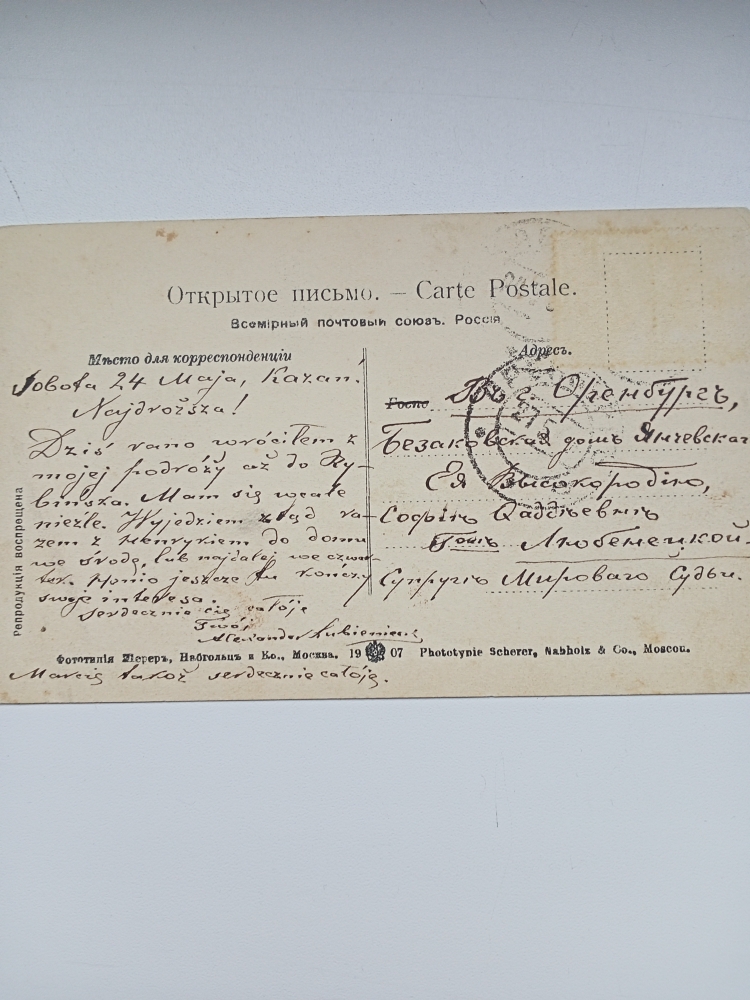 Открытое письмо. — Carte Postale.
Всемірный почтовый союзъ. Россія
Мѣсто для корреспонденціи
Адресъ.
Sobota 24 Maja, Kazan.
Najdroższa!
Dziś rano wróciłem z
mojej podróży aż do Ry-
bińska. Mam się wcale
nieźle. Wyjedziem ztąd ra-
zem z Henrykiem do domu
we środę, lub najdalej we czwar-
tek. jeszcze tu kończy
swoje interesa.
Serdecznie cię całuję
Twój
Alexander Łubieniecki
Marcię także serdecznie całuję.
Въ г. Оренбургъ,
Безаковская домъ Янчевскаго
Ея Высокородію,
Софьѣ Фаддѣевнѣ
Гошъ Любенецкой
Супругѣ Мироваго Судьи.
Репродукція воспрещена
Фототипія Шереръ, Набгольцъ и Ко., Москва. 19 07 Phototypie Scherer, Nabholz & Co., Moscou.